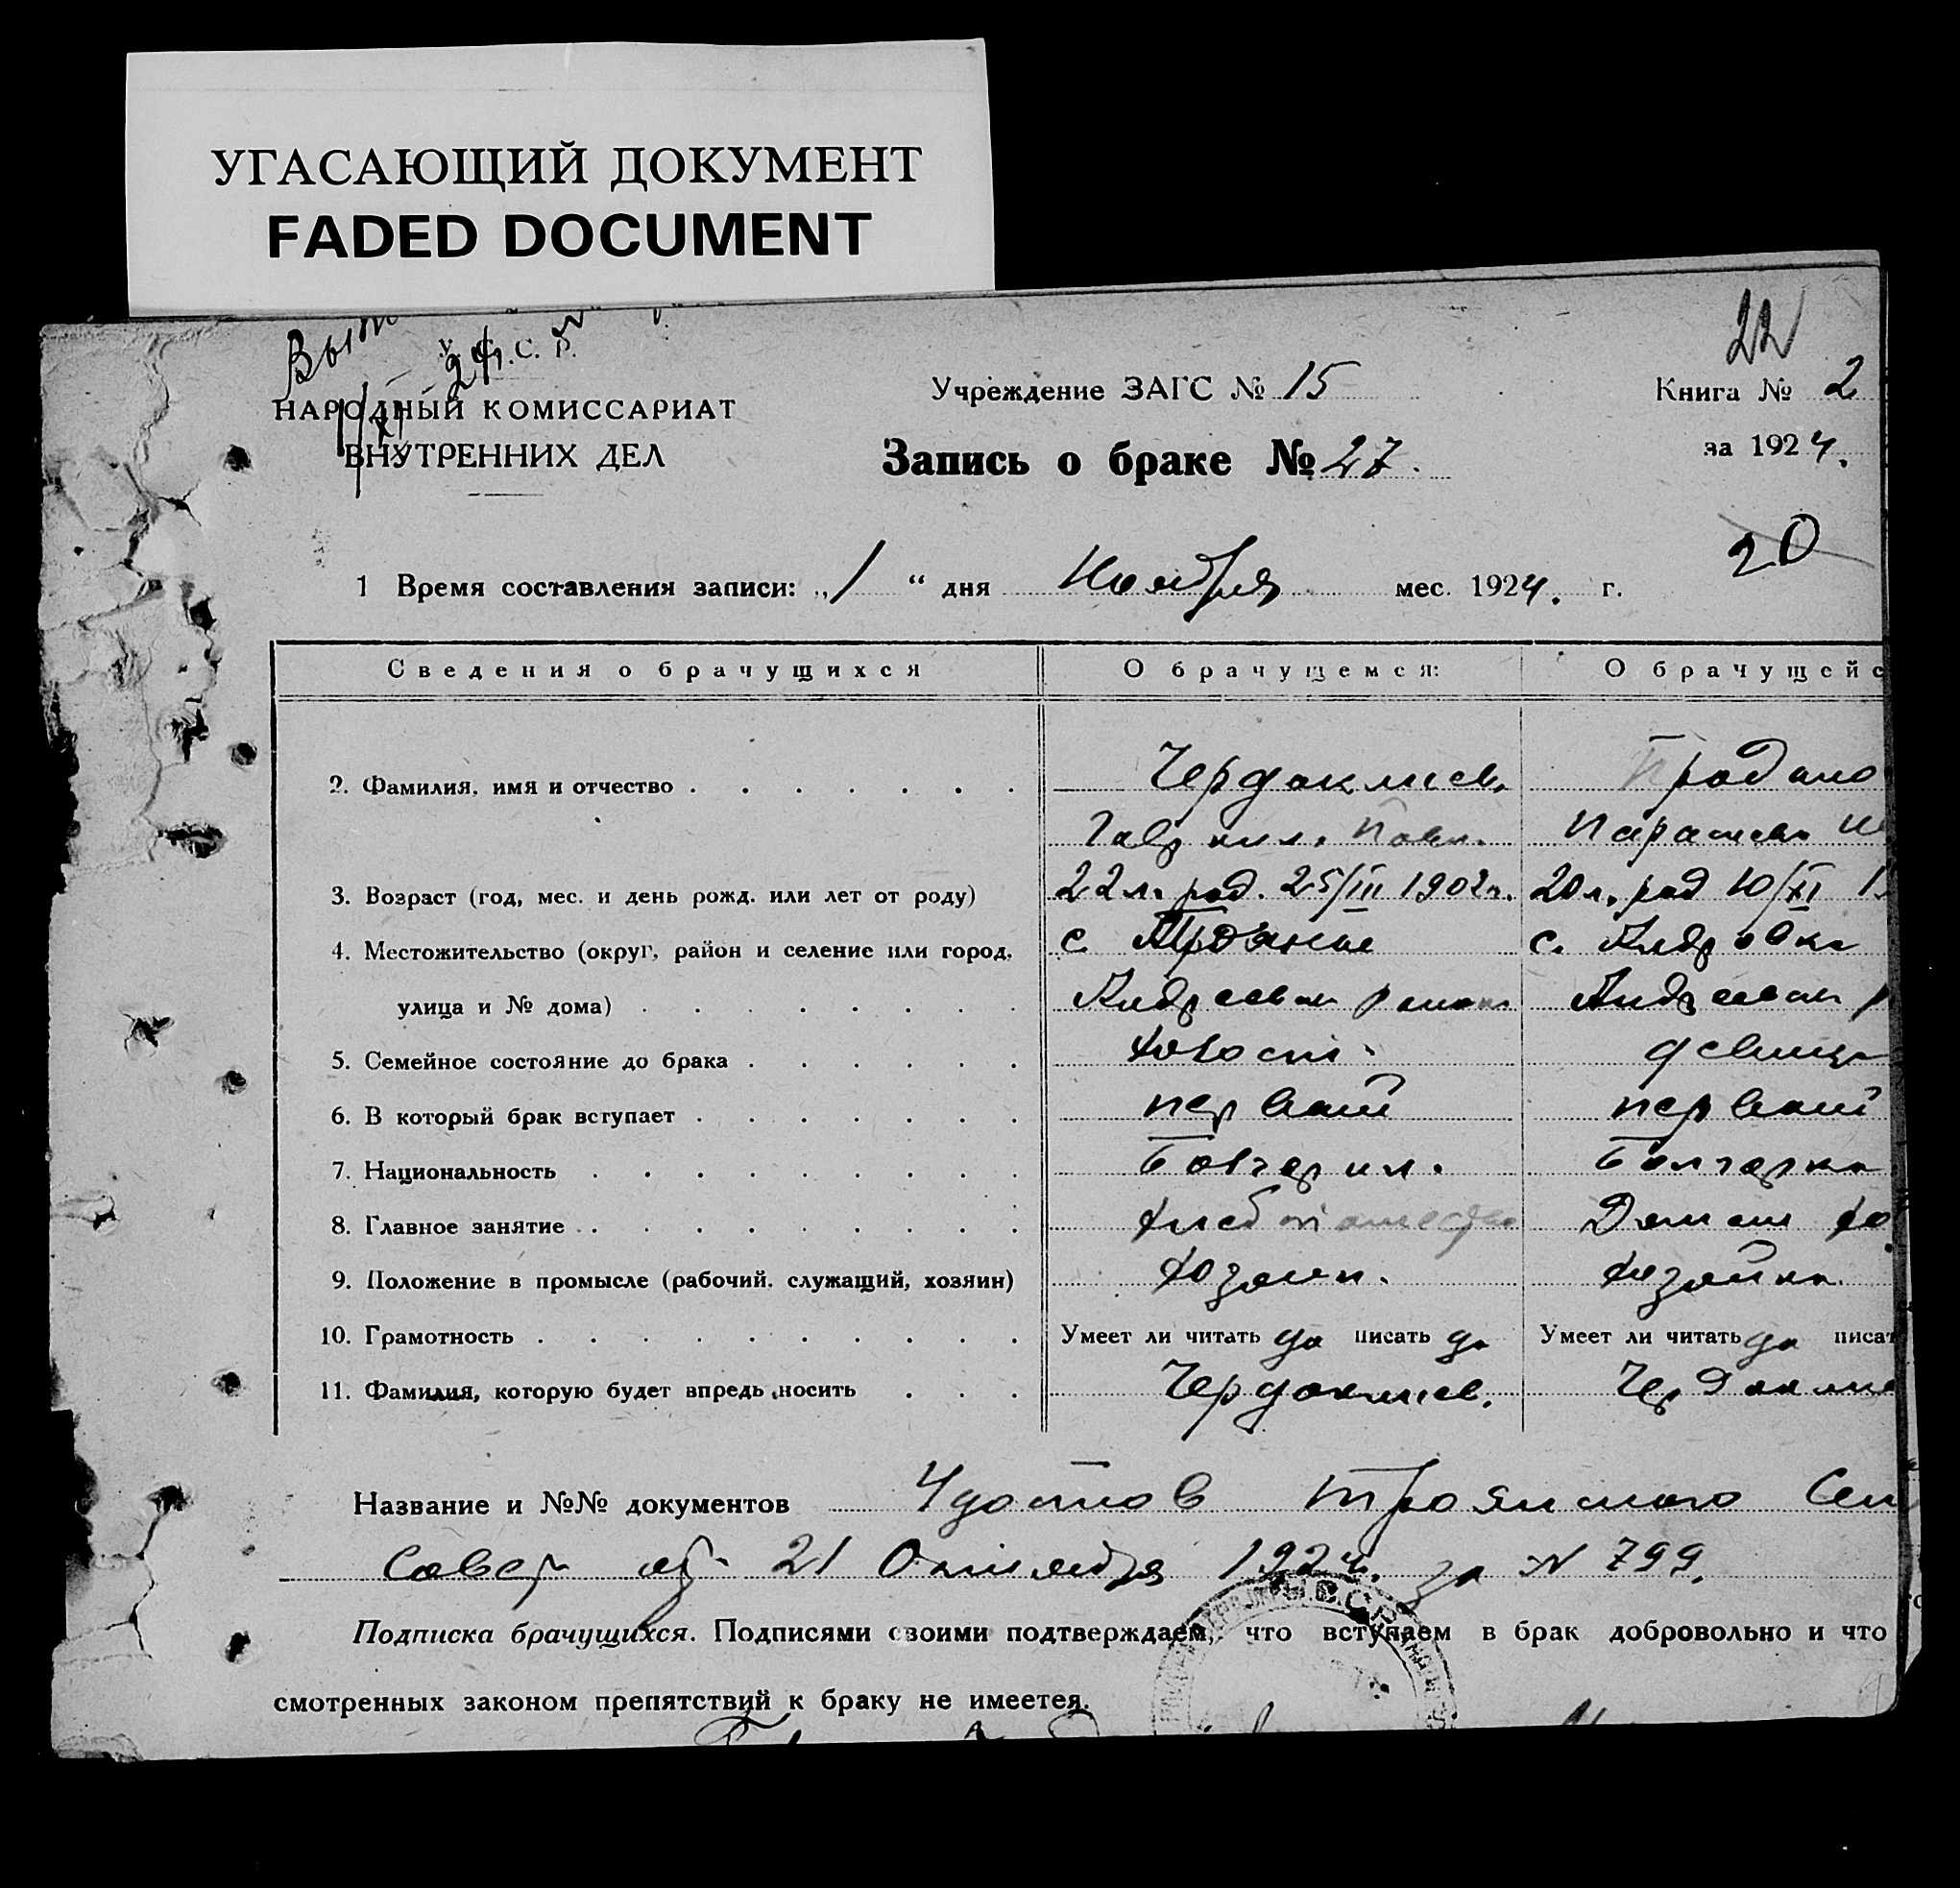 УГАСАЮЩИЙ ДОКУМЕНТ
FADED DOCUMENT
22
У. С. С. Р.
НАРОДНЫЙ КОМИССАРИАТ
ВНУТРЕННИХ ДЕЛ
Учреждение ЗАГС № 15
Книга № 2
Запись о браке № 27.
за 1924.
20
1 Время составления записи: „1“ дня Ноября мес. 1924. г.
Сведения о брачущихся О брачущемся: О брачущейс
2. Фамилия, имя и отчество Чердаклиев. Продано
Гавриил. Павл. Параскева
3. Возраст (год, мес. и день рожд. или лет от роду) 22 л. род. 25/III 1902г. 20 л. род 10/XI 1
4. Местожительство (округ, район и селение или город, с. Трояны с. Андровка
улица и № дома) Андреевск района Андреевск р
5. Семейное состояние до брака холост. девица
6. В который брак вступает первый первый
7. Национальность Болгарин. Болгарка
8. Главное занятие Домаш хо
9. Положение в промысле (рабочий, служащий, хозяин) хозяин. хозяйка.
10. Грамотность Умеет ли читать да писать да Умеет ли читать да писат
11. Фамилия, которую будет впредь носить Чердаклиев. Чердаклие
Название и №№ документов Удостов Троянского Сел
Совета от 21 Октября 1924г. за N 799.
Подписка брачущихся. Подписями своими подтверждаем, что вступаем в брак добровольно и что
смотренных законом препятствий к браку не имеется.